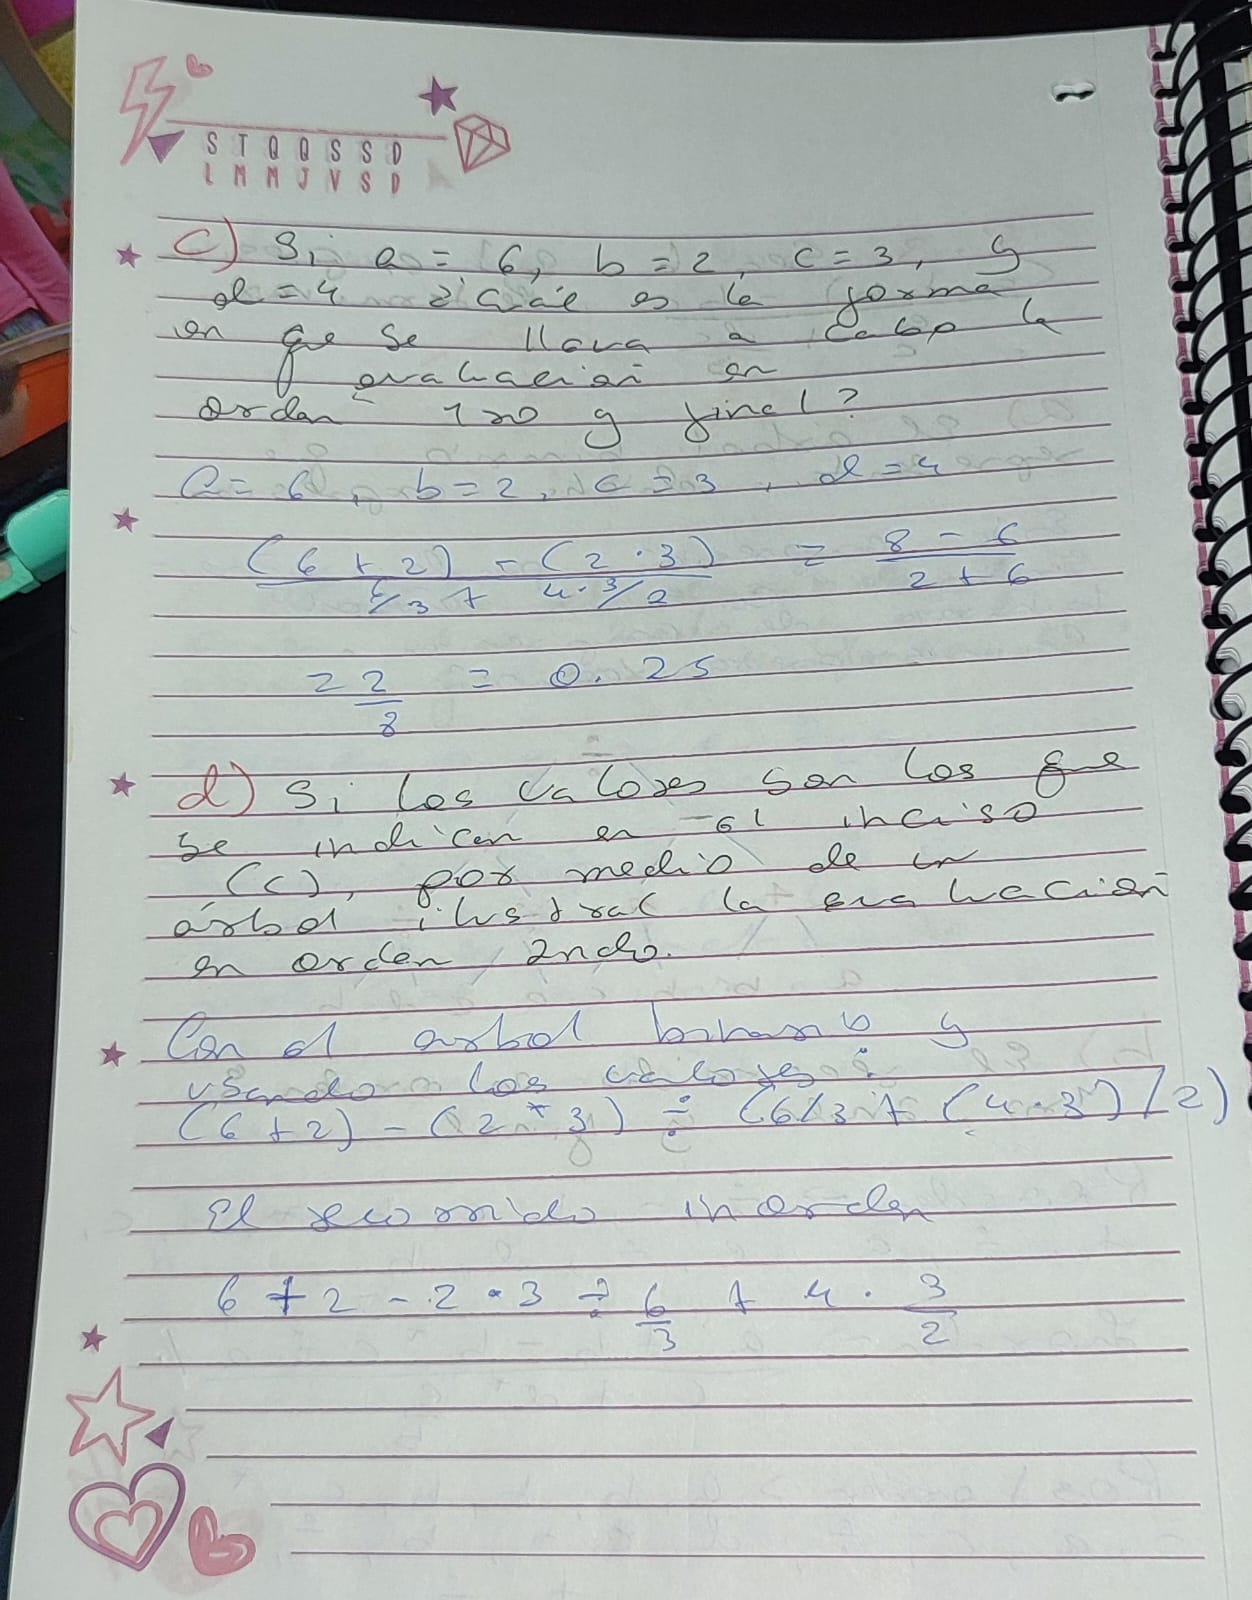 S T Q Q S S D
L M M J V S D
c) Si a = 6, b = 2, c = 3, y
d = 4 ¿Cuál es la forma
en que se lleva a cabo la
evaluación en
orden 1ro y final?
a = 6, b = 2, c = 3, d = 4
(6 + 2) - (2 · 3) = 8 - 6
6/3 + 4 · 3/2 2 + 6
= 2 = 0.25
8
d) Si los valores son los que
se indican en el inciso
(c), por medio de un
árbol ilustrar la evaluación
en orden 2ndo.
Con el arbol binario y
usando los valores:
(6 + 2) - (2 * 3) ÷ (6/3 + (4 · 3) / 2)
El recorrido inorden
6 + 2 - 2 · 3 ÷ 6 + 4 · 3
3 2